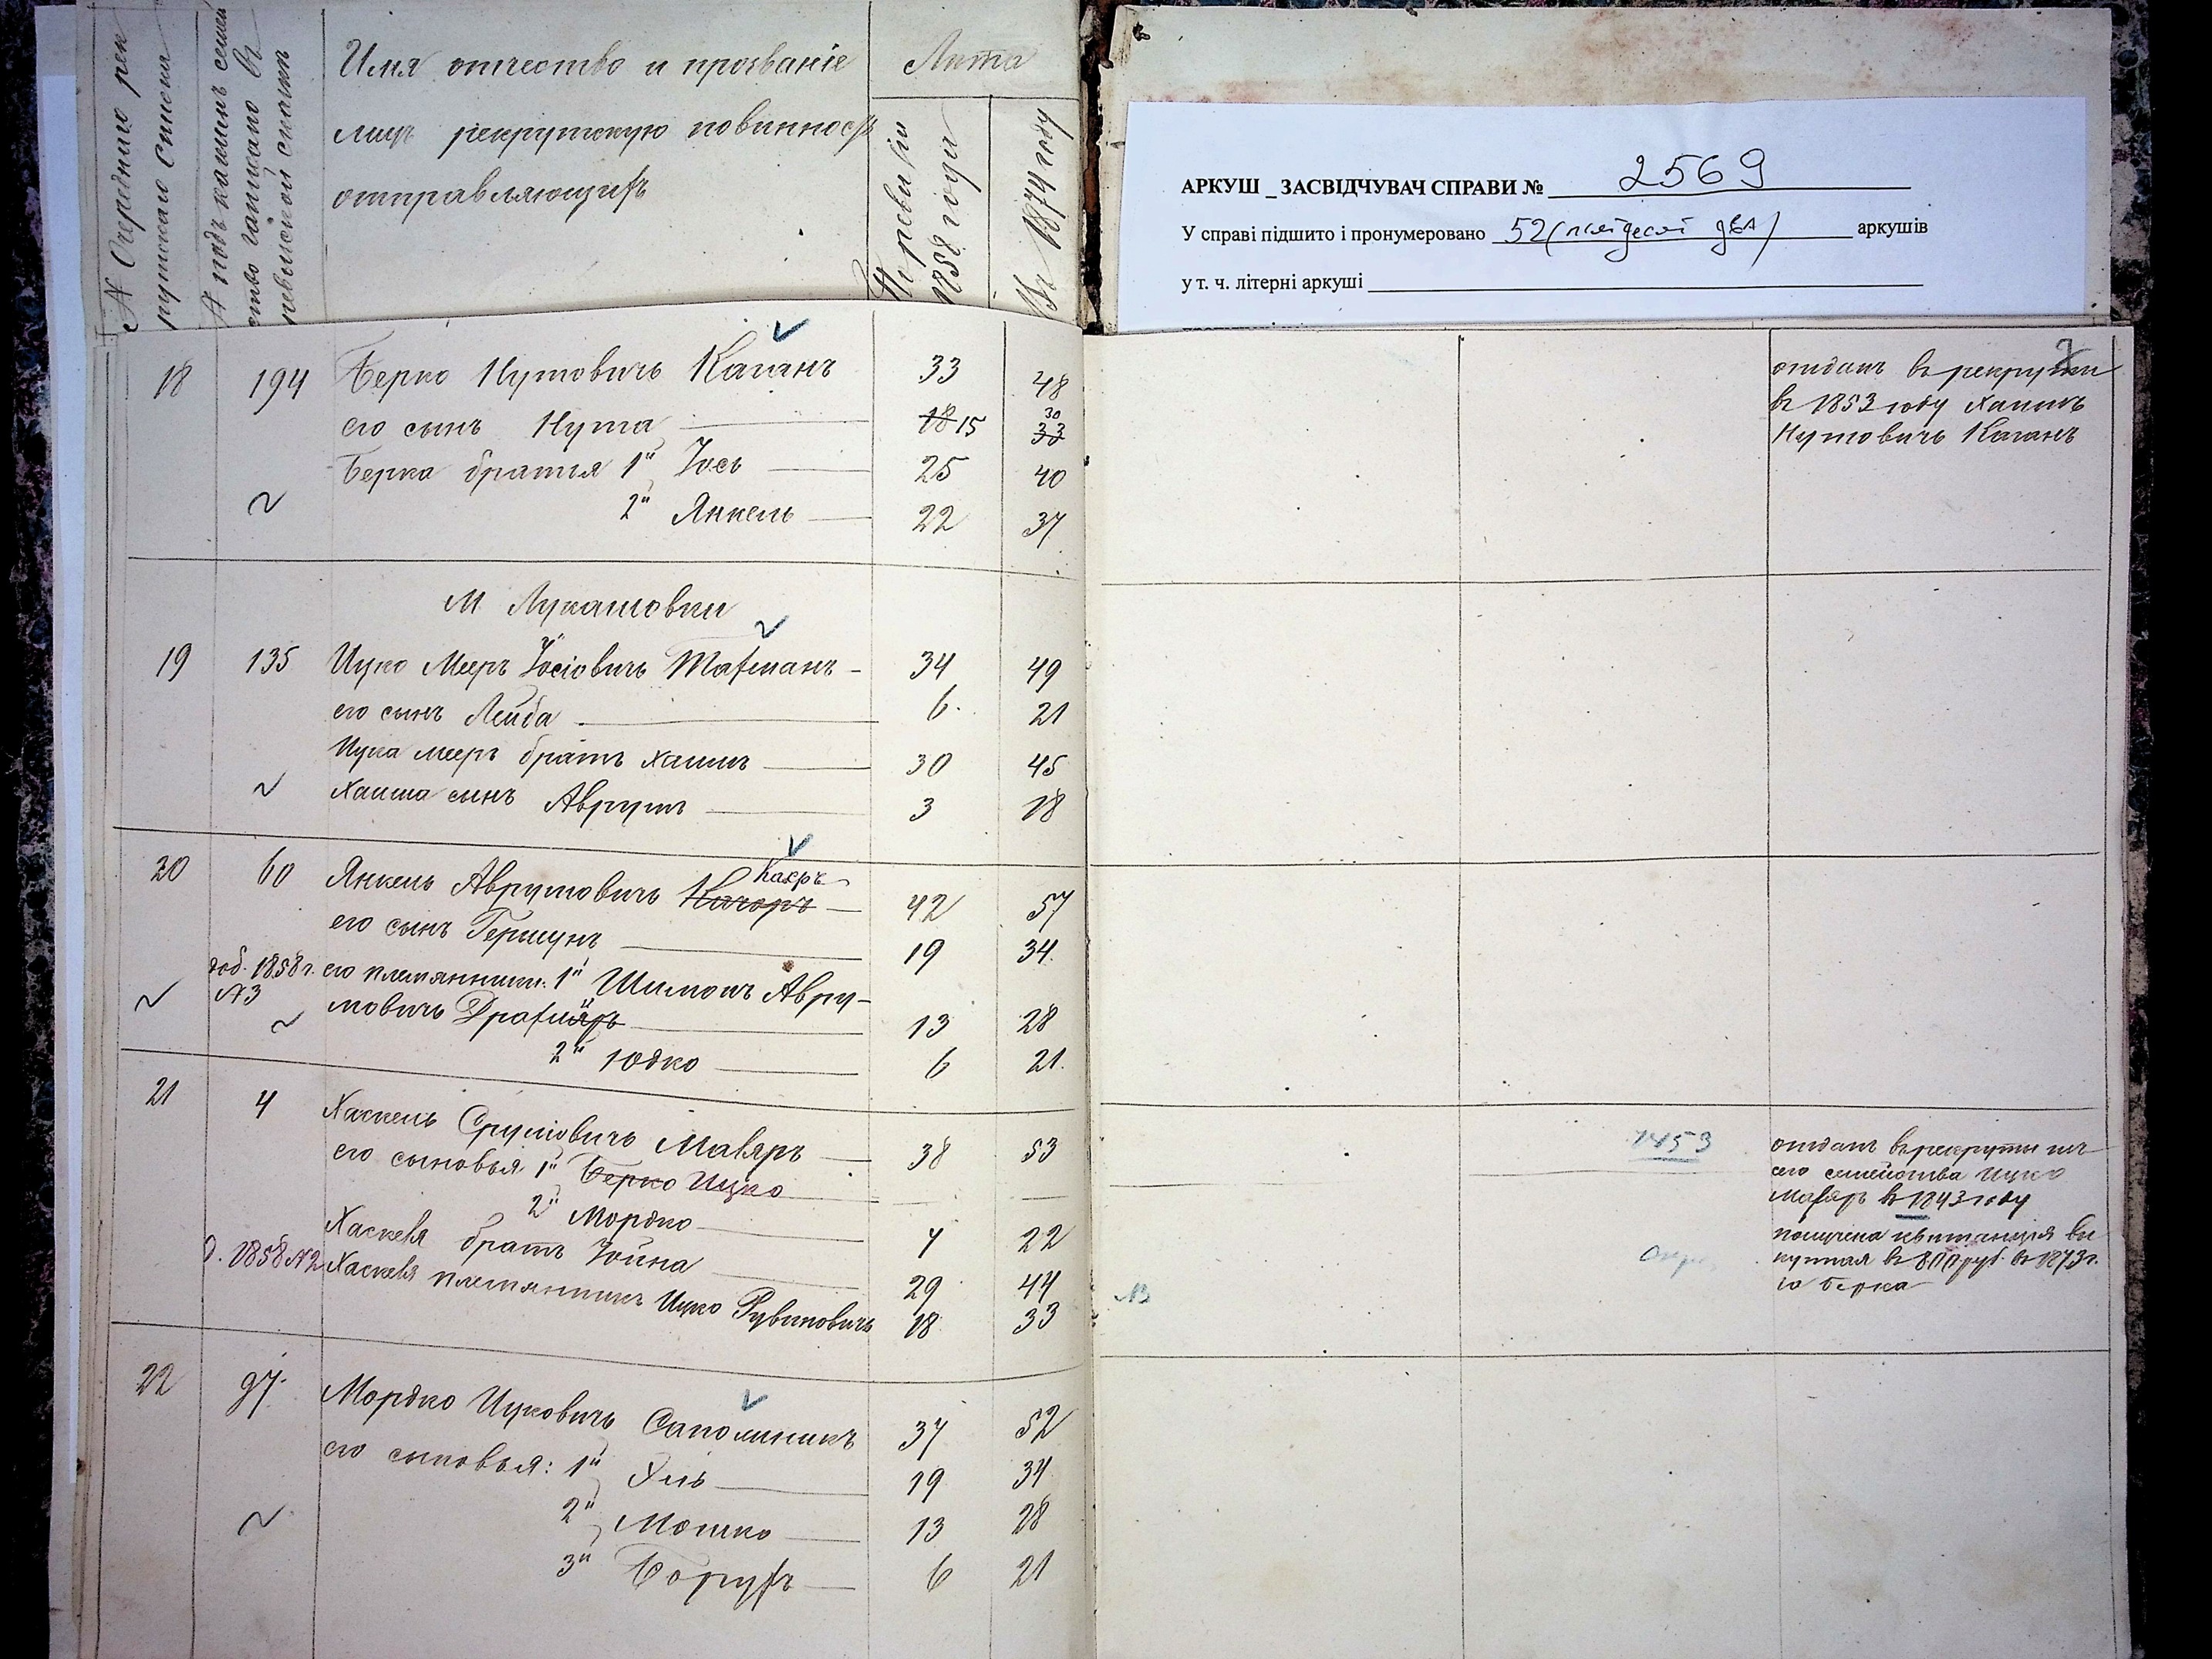 № Очереднаго рек
рутскаго списка
№ подъ какимъ семей
ство записано въ
ревизской сказкѣ
Имя отчество и прозваніе
лицъ рекрутскую повинность
отправляющихъ
Лѣта
По ревизіи
1858 года
Въ 1874 году
АРКУШ _ ЗАСВІДЧУВАЧ СПРАВИ № 2569
У справі підшито і пронумеровано 52 (пятдесят два) аркушів
у т. ч. літерні аркуші
18 194 Берко Нутовичъ Каганъ 33 48
его сынъ Нута 18 15 30 33
Берка братья 1й Іось 25 40
2й Янкель 22 37
отданъ въ рекруты
въ 1853 году Хаимъ
Нутовичъ Каганъ
М Лукашовки
19 135 Ицко Мееръ Іосіовичъ Тахманъ 34 49
его сынъ Лейба 6 21
Ицка Меера братъ Хаимъ 30 45
Хаима сынъ Аврумъ 3 18
20 60 Янкель Аврумовичъ Качоръ Каеръ 42 57
его сынъ Гершунъ 19 34
доб. 1858 г. его племянники: 1й Шимонъ Авру-
№3 мовичъ 13 28
2й Юдко 6 21
21 4 Хаскель Сруліовичъ Маляръ 38 53
его сыновья 1й Берко Ицко
2й Мордко 7 22
Хаскеля братъ Іойна 29 44
д. 1858 №2 Хаскеля племянникъ Ицко Рувиновичъ 18 33
1453
отданъ въ рекруты изъ
его семейства Ицко
Маляръ въ 1843 году
получена квитанція вы
купная въ 800 руб. въ 1873 г.
за Берка
22 97 Мордко Ицковичъ Сапожникъ 37 52
его сыновья: 1й Хиль 19 34
2й Мошко 13 28
3й Борухъ 6 21